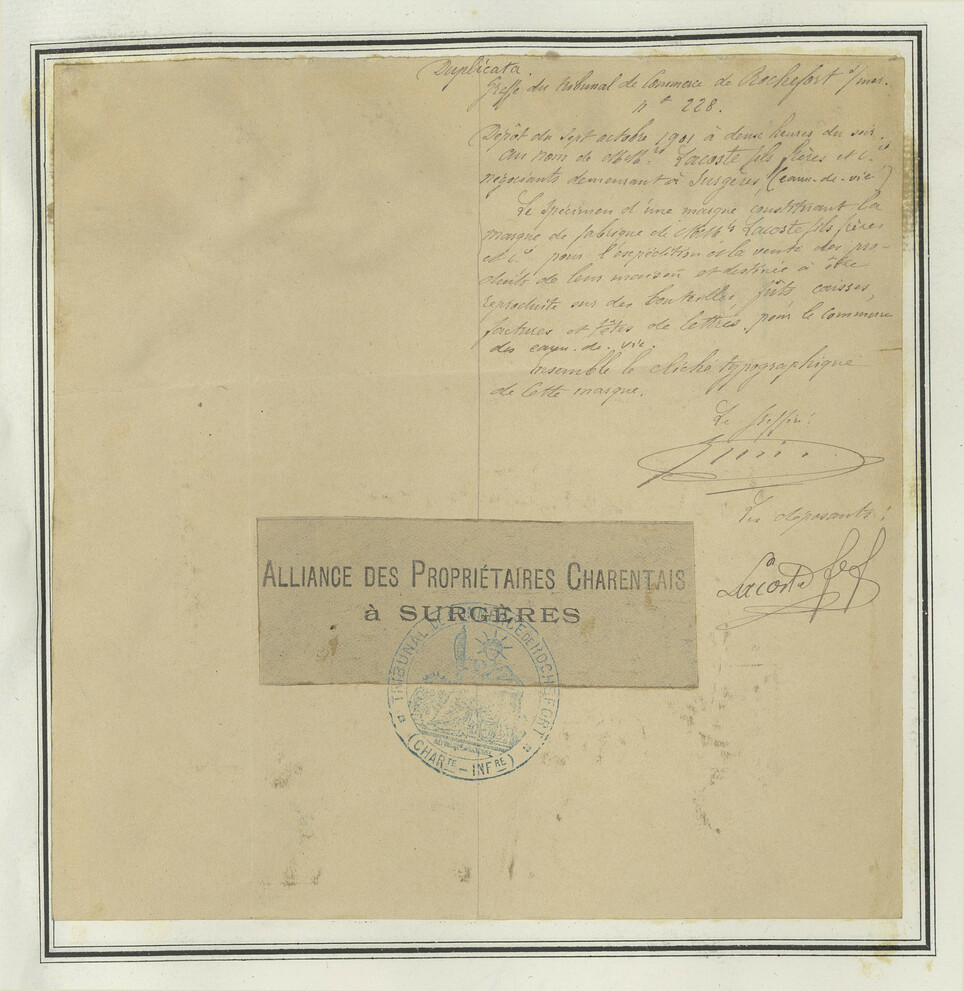 Duplicata.
Greffe du tribunal de Commerce de Rochefort s/mer.
n° 228.
Dépôt du Sept octobre 1901 à deux heures du soir.
Au nom de MM.rs Lacoste fils frères et C.ie
négociants demeurant à Surgères, (eaux-de-vie)
Le spécimen d'une marque constituant la
marque de fabrique de MM.rs Lacoste fils frères
et C.ie pour l'expédition et la vente des pro-
duits de leur maison et destinée à être
reproduite sur des bouteilles, fûts caisses,
factures et têtes de lettres, pour le commerce
des eaux-de-vie.
Ensemble le cliché typographique
de cette marque.
Le Greffier:
Les déposants:
Lacoste
ALLIANCE DES PROPRIÉTAIRES CHARENTAIS
à SURGÈRES
TRIBUNAL DE COMMERCE DE ROCHEFORT
(CHARTE - INFRE)